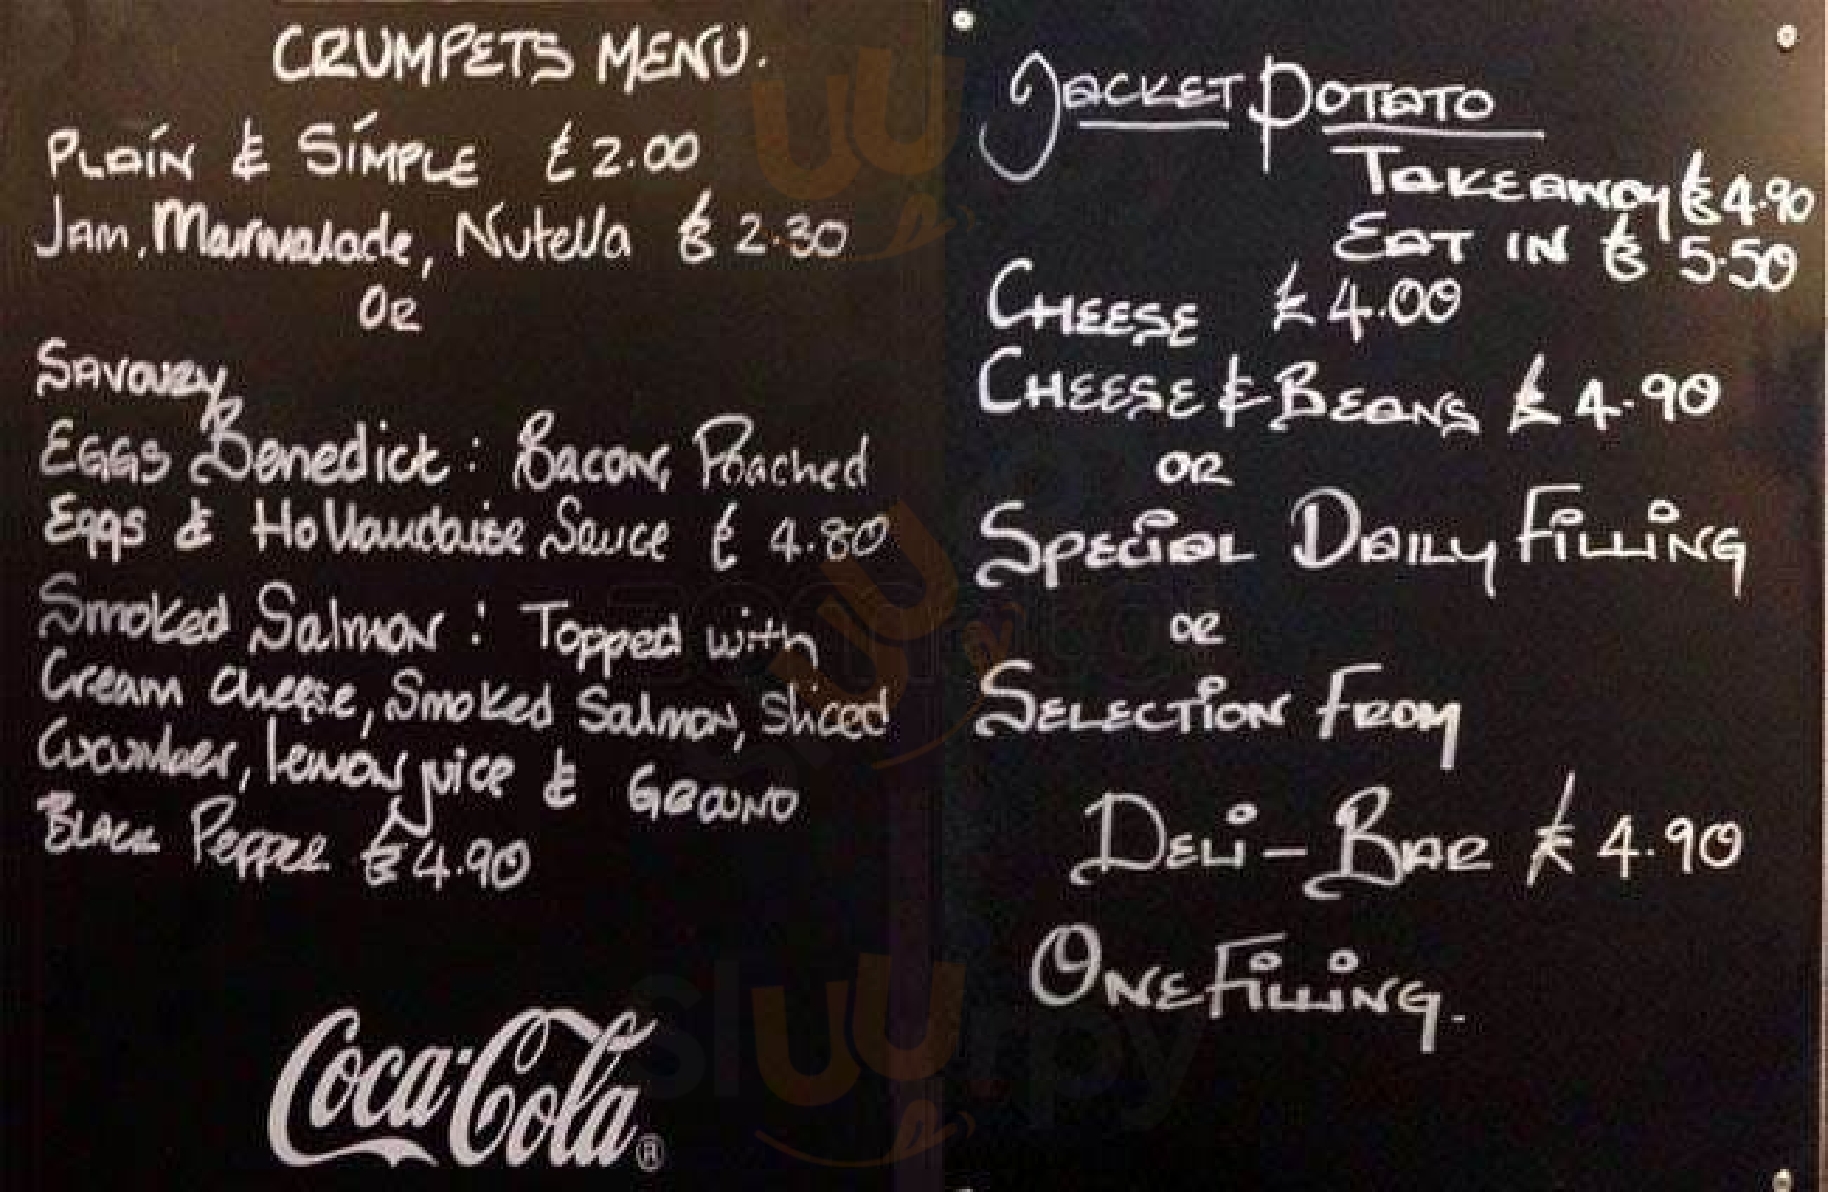 CRUMPETS MENU.
PLAIN & SIMPLE £2.00
JAM, Marmalade, Nutella £2.30
OR
SAVOURY
EGGS Benedict: BACON, Poached
Eggs & Hollandaise Sauce £4.80
Smoked Salmon: Topped with
Cream cheese, Smoked Salmon, Sliced
Cucumber, lemon juice & GROUND
BLACK PEPPER £4.90
Coca-Cola®
JACKET POTATO
TAKEAWAY £4.90
EAT IN £5.50
CHEESE £4.00
CHEESE & BEANS £4.90
OR
SPECIAL DAILY FILLING
OR
SELECTION FROM
DELI-BAR £4.90
ONE FILLING.
sluurpy